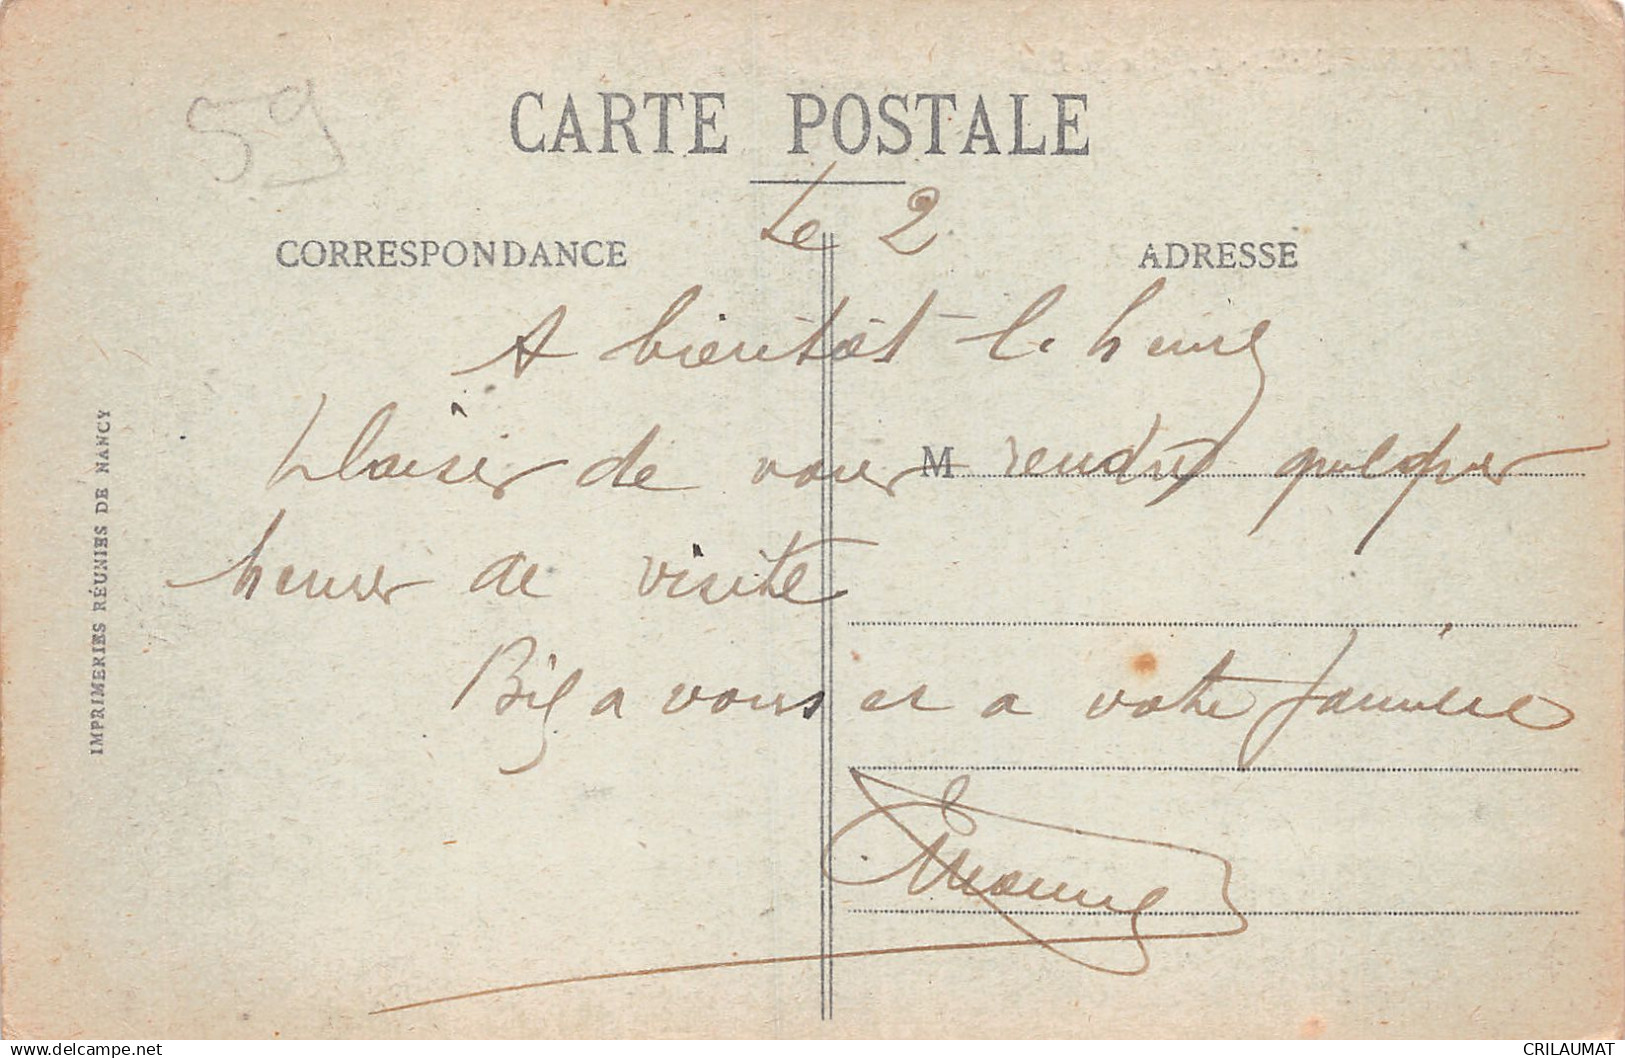 59
CARTE POSTALE
Le 2
CORRESPONDANCE
ADRESSE
A bientôt le
plaisir de vous M rendre quelques
heures de visite
Big a vous et a votre famille
IMPRIMERIES RÉUNIES DE NANCY
delcampe.net
CRILAUMAT